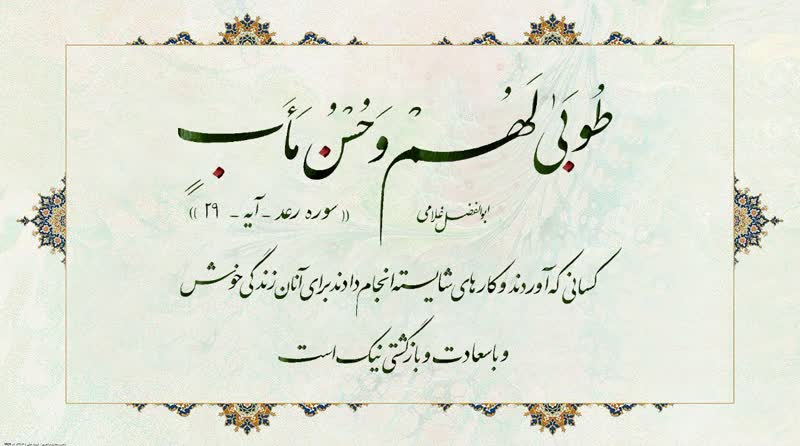 طُوبَىٰ لَهُمْ وَحُسْنُ مَأَبٍ
ابوالفضل غلامی
(( سوره رعد - آیه - ۲۹ ))
کسانی که آوردند و کار های شایسته انجام دادند برای آنان زندگی خوش
و با سعادت و بازگشتی نیک است